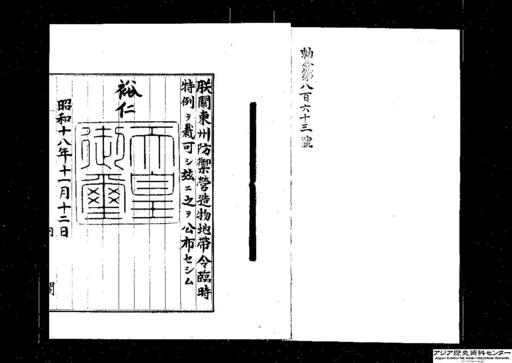 勅令第八百六十三號
朕關東州防禦營造物地帶令臨時
特例ヲ裁可シ玆ニ之ヲ公布セシム
裕仁
天皇御璽
昭和十八年十一月十二日
アジア歴史資料センター
Japan Center for Asian Historical Records